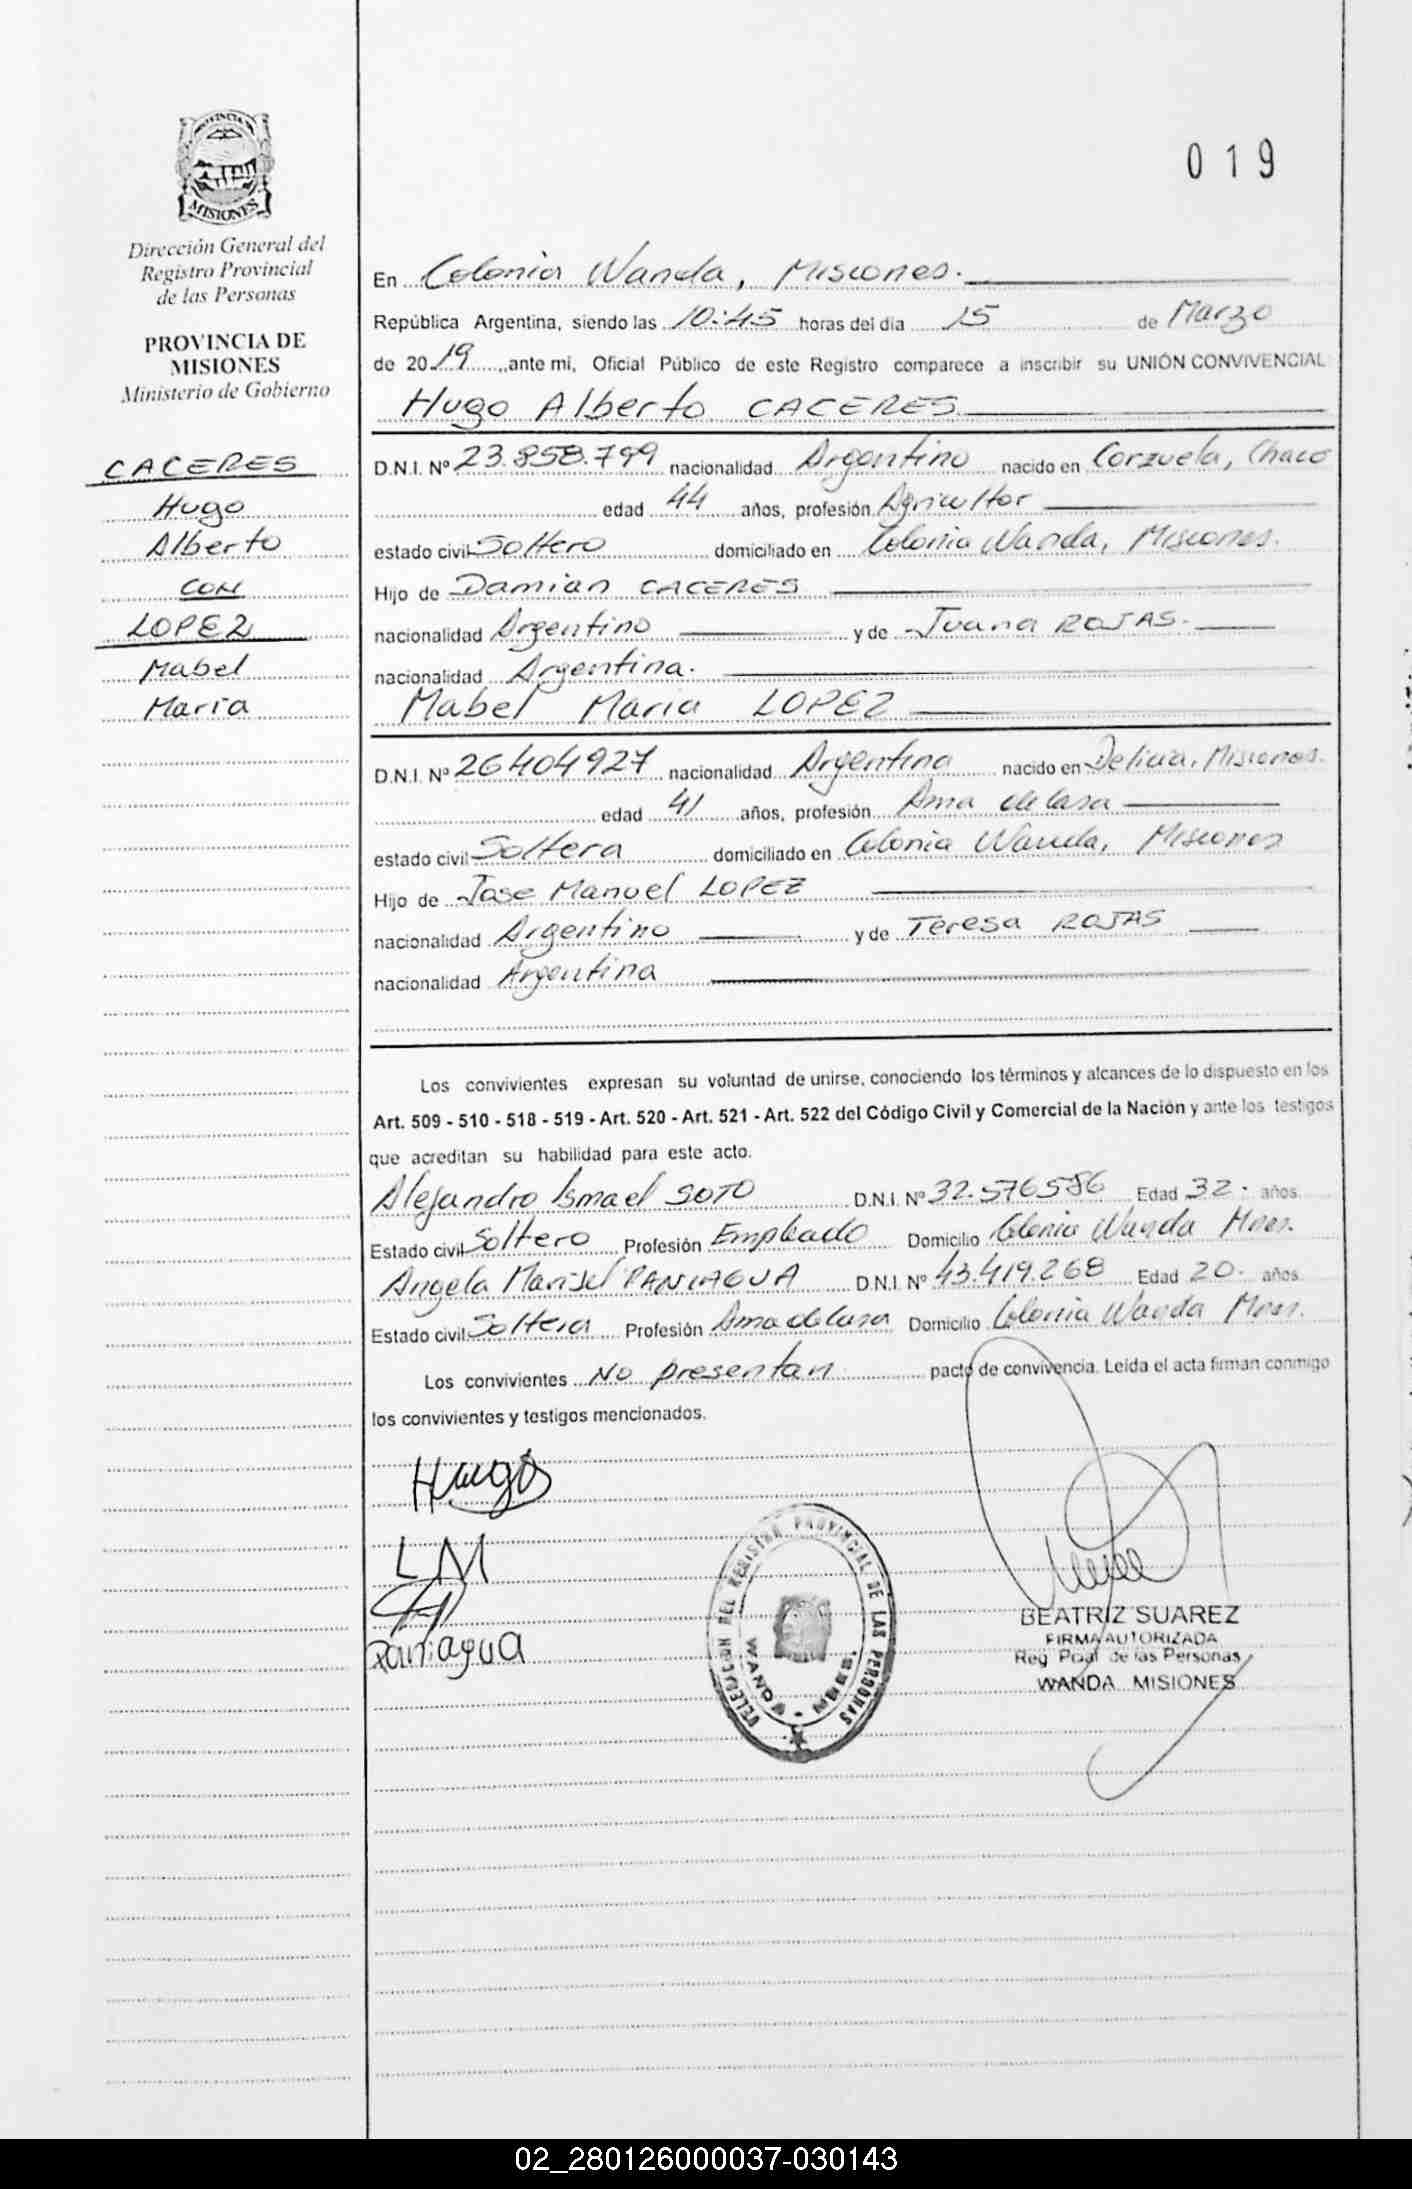 PROVINCIA DE
MISIONES
Dirección General del
Registro Provincial
de las Personas
PROVINCIA DE
MISIONES
Ministerio de Gobierno
CACERES
Hugo
Alberto
CON
LOPEZ
Mabel
Maria
019
En Colonia Wanda, Misiones.
República Argentina, siendo las 10:45 horas del día 15 de Marzo
de 2019, ante mi, Oficial Público de este Registro comparece a inscribir su UNIÓN CONVIVENCIAL
Hugo Alberto CACERES
D.N.I. Nº 23.858.799 nacionalidad Argentino nacido en Corzuela, Chaco
edad 44 años, profesión Agricultor
estado civil Soltero domiciliado en Colonia Wanda, Misiones.
Hijo de Damian CACERES
nacionalidad Argentino y de Juana ROJAS.
nacionalidad Argentina.
Mabel Maria LOPEZ
D.N.I. Nº 26404927 nacionalidad Argentina nacido en Delicia, Misiones.
edad 41 años, profesión Ama de casa
estado civil Soltera domiciliado en Colonia Wanda, Misiones
Hijo de Jose Manuel LOPEZ
nacionalidad Argentino y de Teresa ROJAS
nacionalidad Argentina
Los convivientes expresan su voluntad de unirse, conociendo los términos y alcances de lo dispuesto en los
Art. 509 - 510 - 518 - 519 - Art. 520 - Art. 521 - Art. 522 del Código Civil y Comercial de la Nación y ante los testigos
que acreditan su habilidad para este acto.
Alejandro Ismael SOTO D.N.I. Nº 32.576586 Edad 32. años.
Estado civil Soltero Profesión Empleado Domicilio Colonia Wanda Mnes.
Angela Marisel PANIAGUA D.N.I. Nº 43.419.268 Edad 20. años.
Estado civil Soltera Profesión Ama de casa Domicilio Colonia Wanda Mnes.
Los convivientes No presentan pacto de convivencia. Leída el acta firman conmigo
los convivientes y testigos mencionados.
Hugo
LM
Paniagua
DEL REGISTRO PROVINCIAL DE LAS PERSONAS
WANDA - MNES.
BEATRIZ SUAREZ
FIRMA AUTORIZADA
Reg. Pcial de las Personas
WANDA MISIONES
02_280126000037-030143